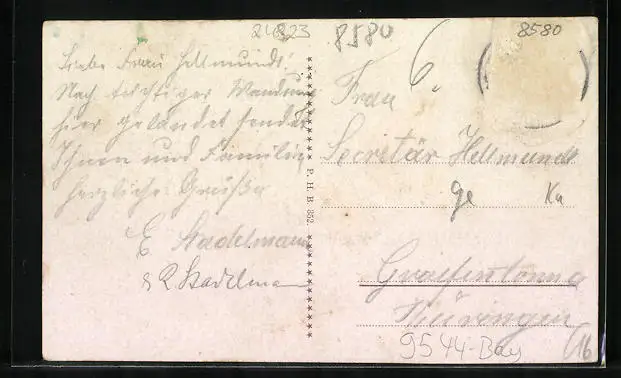 24823
8580
8580
Liebe Frau Hellmundt!
Nach tüchtiger Wanderung
hier gelandet sendet
Ihnen und Familie
herzliche Grüße
E Stadelmann
& R Stadelmann
P. H. B. 852.
6.
Frau
Secretär Hellmundt
ge Ka
Graefentonna
Thüringen
9544-Bay
16